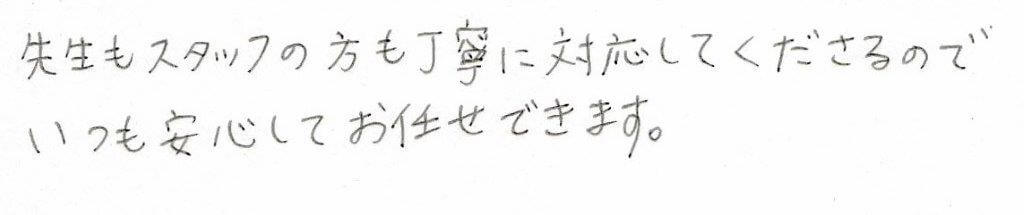 先生もスタッフの方も丁寧に対応してくださるので
いつも安心してお任せできます。